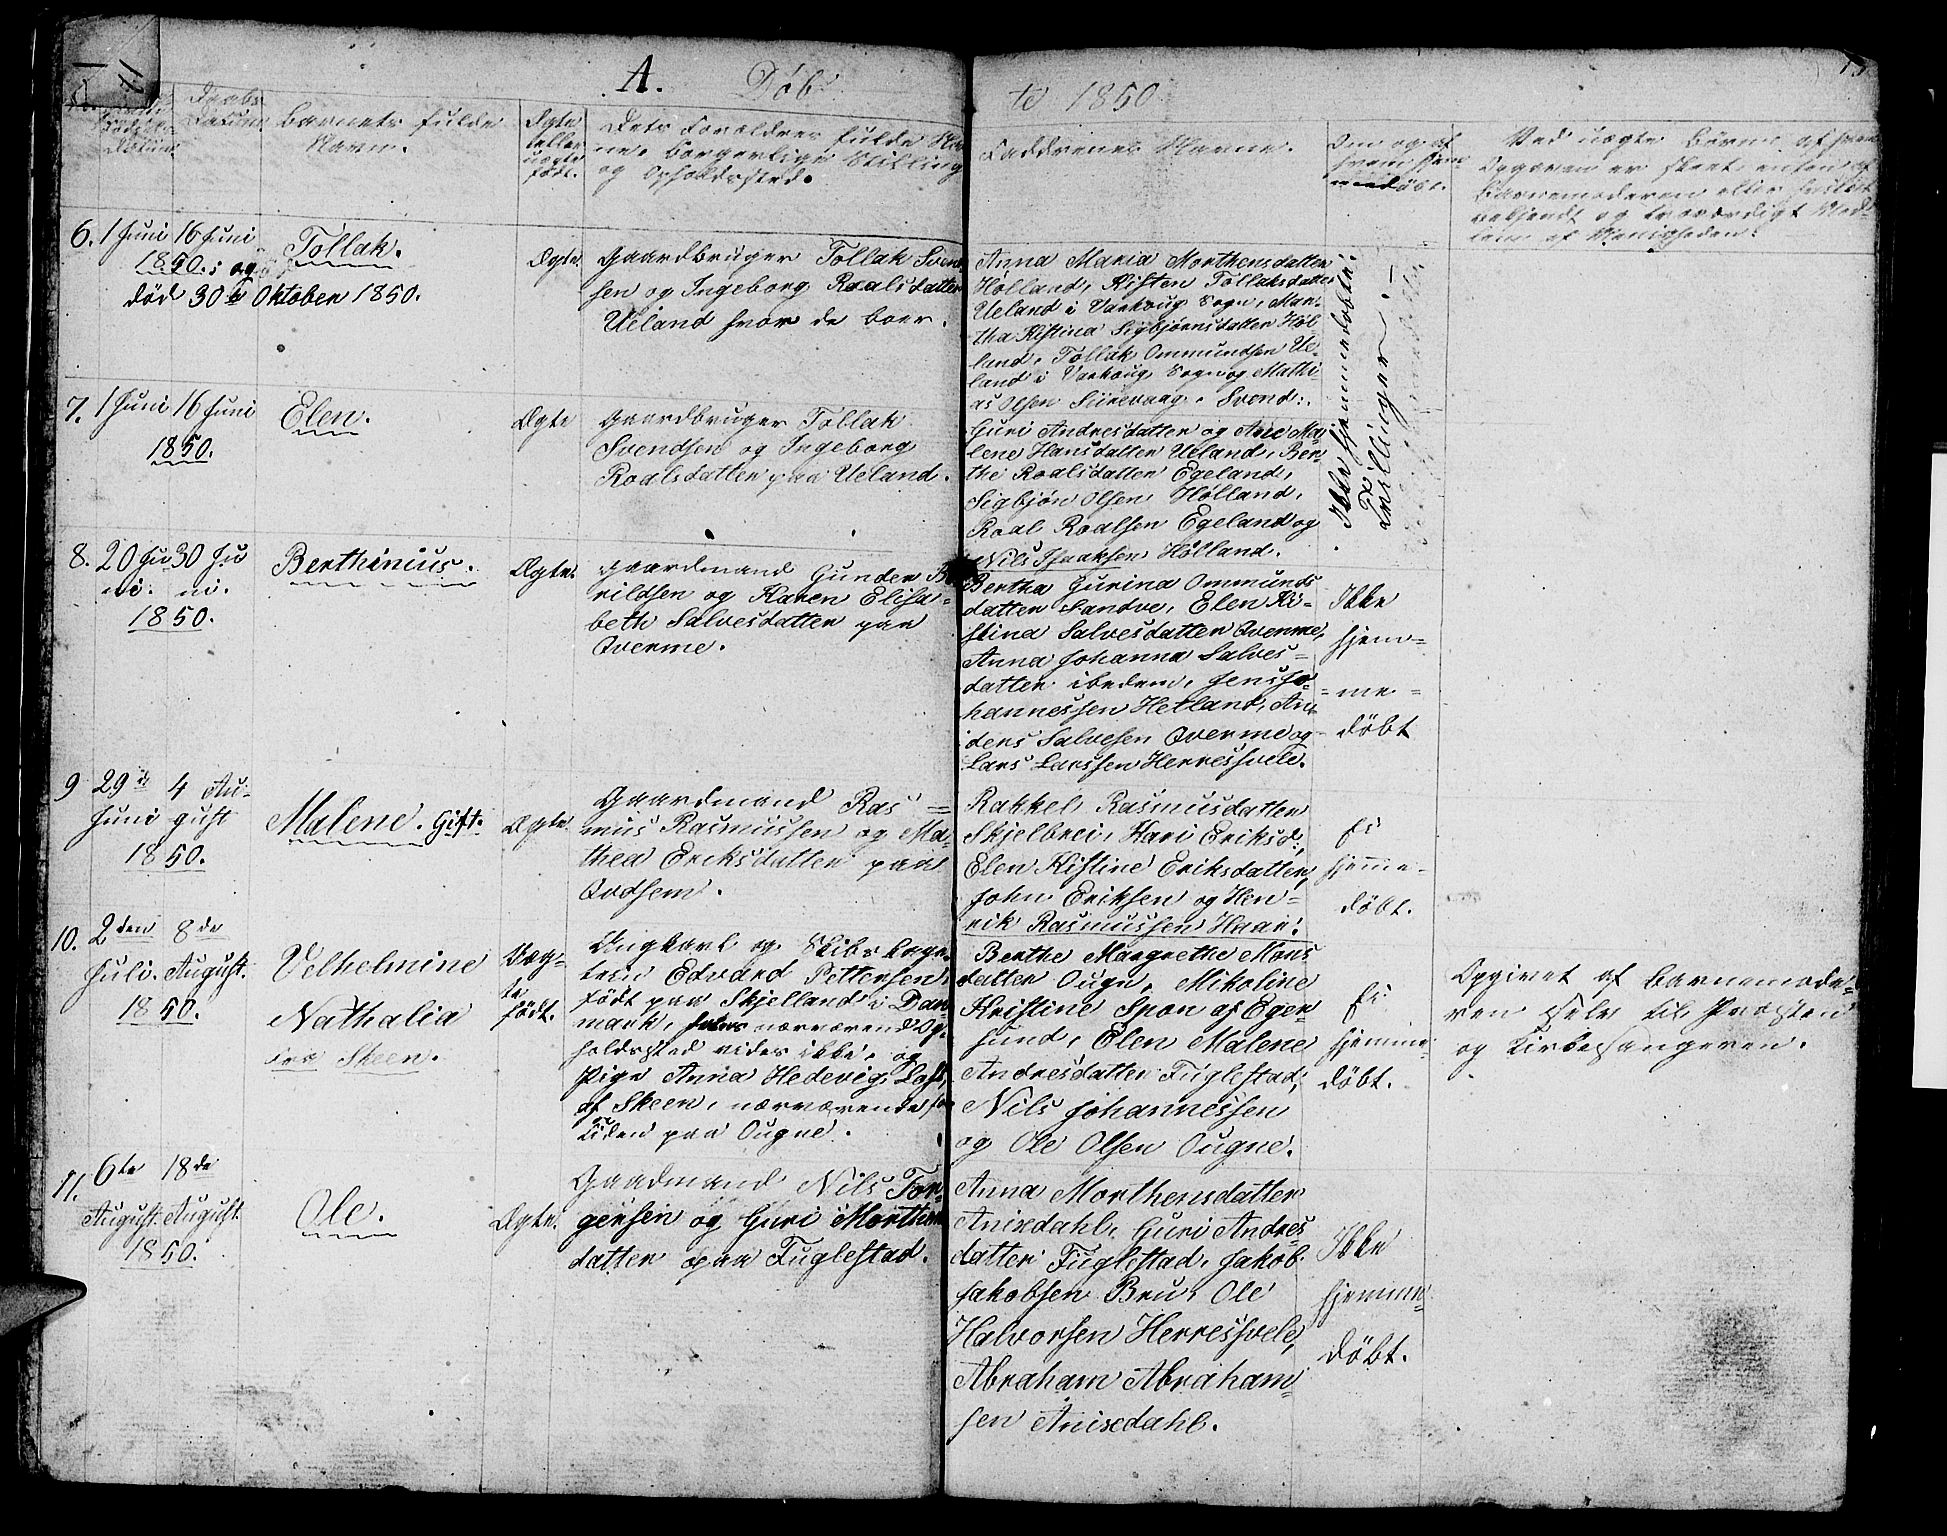 A. Døb
te 1850
Daabs
Datum
Barnets fulde
Navn.
Ægte
eller
uægte
født.
Dets Forældres fulde Nav
ne, borgerlige Stilling
og Opholdssted.
Faddrenes Navne.
Om og af
hvem hjem
medøbt.
Ved uægte Børn, af hvem
Opgaven er skeet, enten af
Barnemoderen eller
bekjendt og troværdigt Med-
lem af Menigheden.
6. 1 Juni 16 Juni
1850. og
død 30te Oktober 1850.
Tollak.
Ægte.
Gaardbruger Tollak Svend
sen og Ingeborg Roalsdatter
Ueland hvor de boer.
Anna Maria Morthensdatter
Hølland, Kisten Tollaksdatter
Ueland i Varhoug Sogn, Mar-
tha Kistina Sigbjørnsdatter Høl-
land, Tollak Ommundsen Ue-
land i Varhoug Sogn og Matti-
as Olsen Siirevaag.
Ikke hjemmedøbte.
Tvillinger.
7. 1 Juni 16 Juni
1850.
Elen.
Ægte
Gaardbruger Tollak
Svendsen og Ingeborg
Roalsdatter paa Ueland.
Guri Andresdatter og Ane Ma-
lene Hansdatter Ueland, Ber-
the Roalsdatter Egeland,
Sigbjørn Olsen Hølland,
Roal Roalsen Egeland og
Nils Isaaksen Hølland.
8. 20 Ju 30 Ju
ni. ni.
1850.
Berthinius.
Ægte.
Gaardmand Gunder B
rildsen og Karen Elisa-
beth Salvesdatter paa
Qverme.
Bertha Gurina Ommunds
datter Sandve, Elen Ki-
stina Salvesdatter Qverme,
Anna Johanna Salves-
datter ibedem, Jens Jo-
hannessen Hetland, An
ders Salvesen Qverme og
Lars Larssen Herressvele.
Ikke
hjem-
me-
døbt
9 29de 4 Au-
Juni gust
1850.
Malene. Gift.
Ægte.
Gaardmand Ras-
mus Rasmussen og Ma-
thea Eriksdatter paa
Qvdsem.
Rakkel Rasmusdatter
Skjelbrei, Kari Eriksd.,
Elen Kistine Eriksdatter,
John Eriksen og Hen-
rik Rasmussen Haar.
Ei
hjemme-
døbt.
10. 2den 8de
Juli. August.
1850.
Velhelmine
Nathalia
fra Skeen.
Uæg-
te
født.
Ungkarl og Skibskap-
tein Edvard Pettersen,
født paa Skjelland i Dan
mark, hvis nærværende Op-
holdssted vides ikke, og
Pige Anna Hedevig Lass
af Skeen, nærværende for
Tiden paa Ougne.
Berthe Margrethe Mons
datter Ougn, Mikoline
Kristine Spon af Eger-
sund, Elen Malene
Andresdatter Fuglestad,
Nils Johannessen
og Ole Olsen Ougne.
Ei
hjemme-
døbt.
Opgivet af Barnemode-
ren selv til Præsten
og Kirkesangeren.
11. 6te 18de
August. August.
1850.
Ole.
Ægte.
Gaadmand Nils Tor-
gersen og Guri Morthens
datter paa Fuglestad.
Anna Morthensdatter
Anisedahl, Guri Andres
datter Fuglestad, Jakob
Jakobsen Bru, Ole
Halvorsen Herressvele,
Abraham Abraham-
sen Anisedahl.
Ikke
hjemme-
døbt.